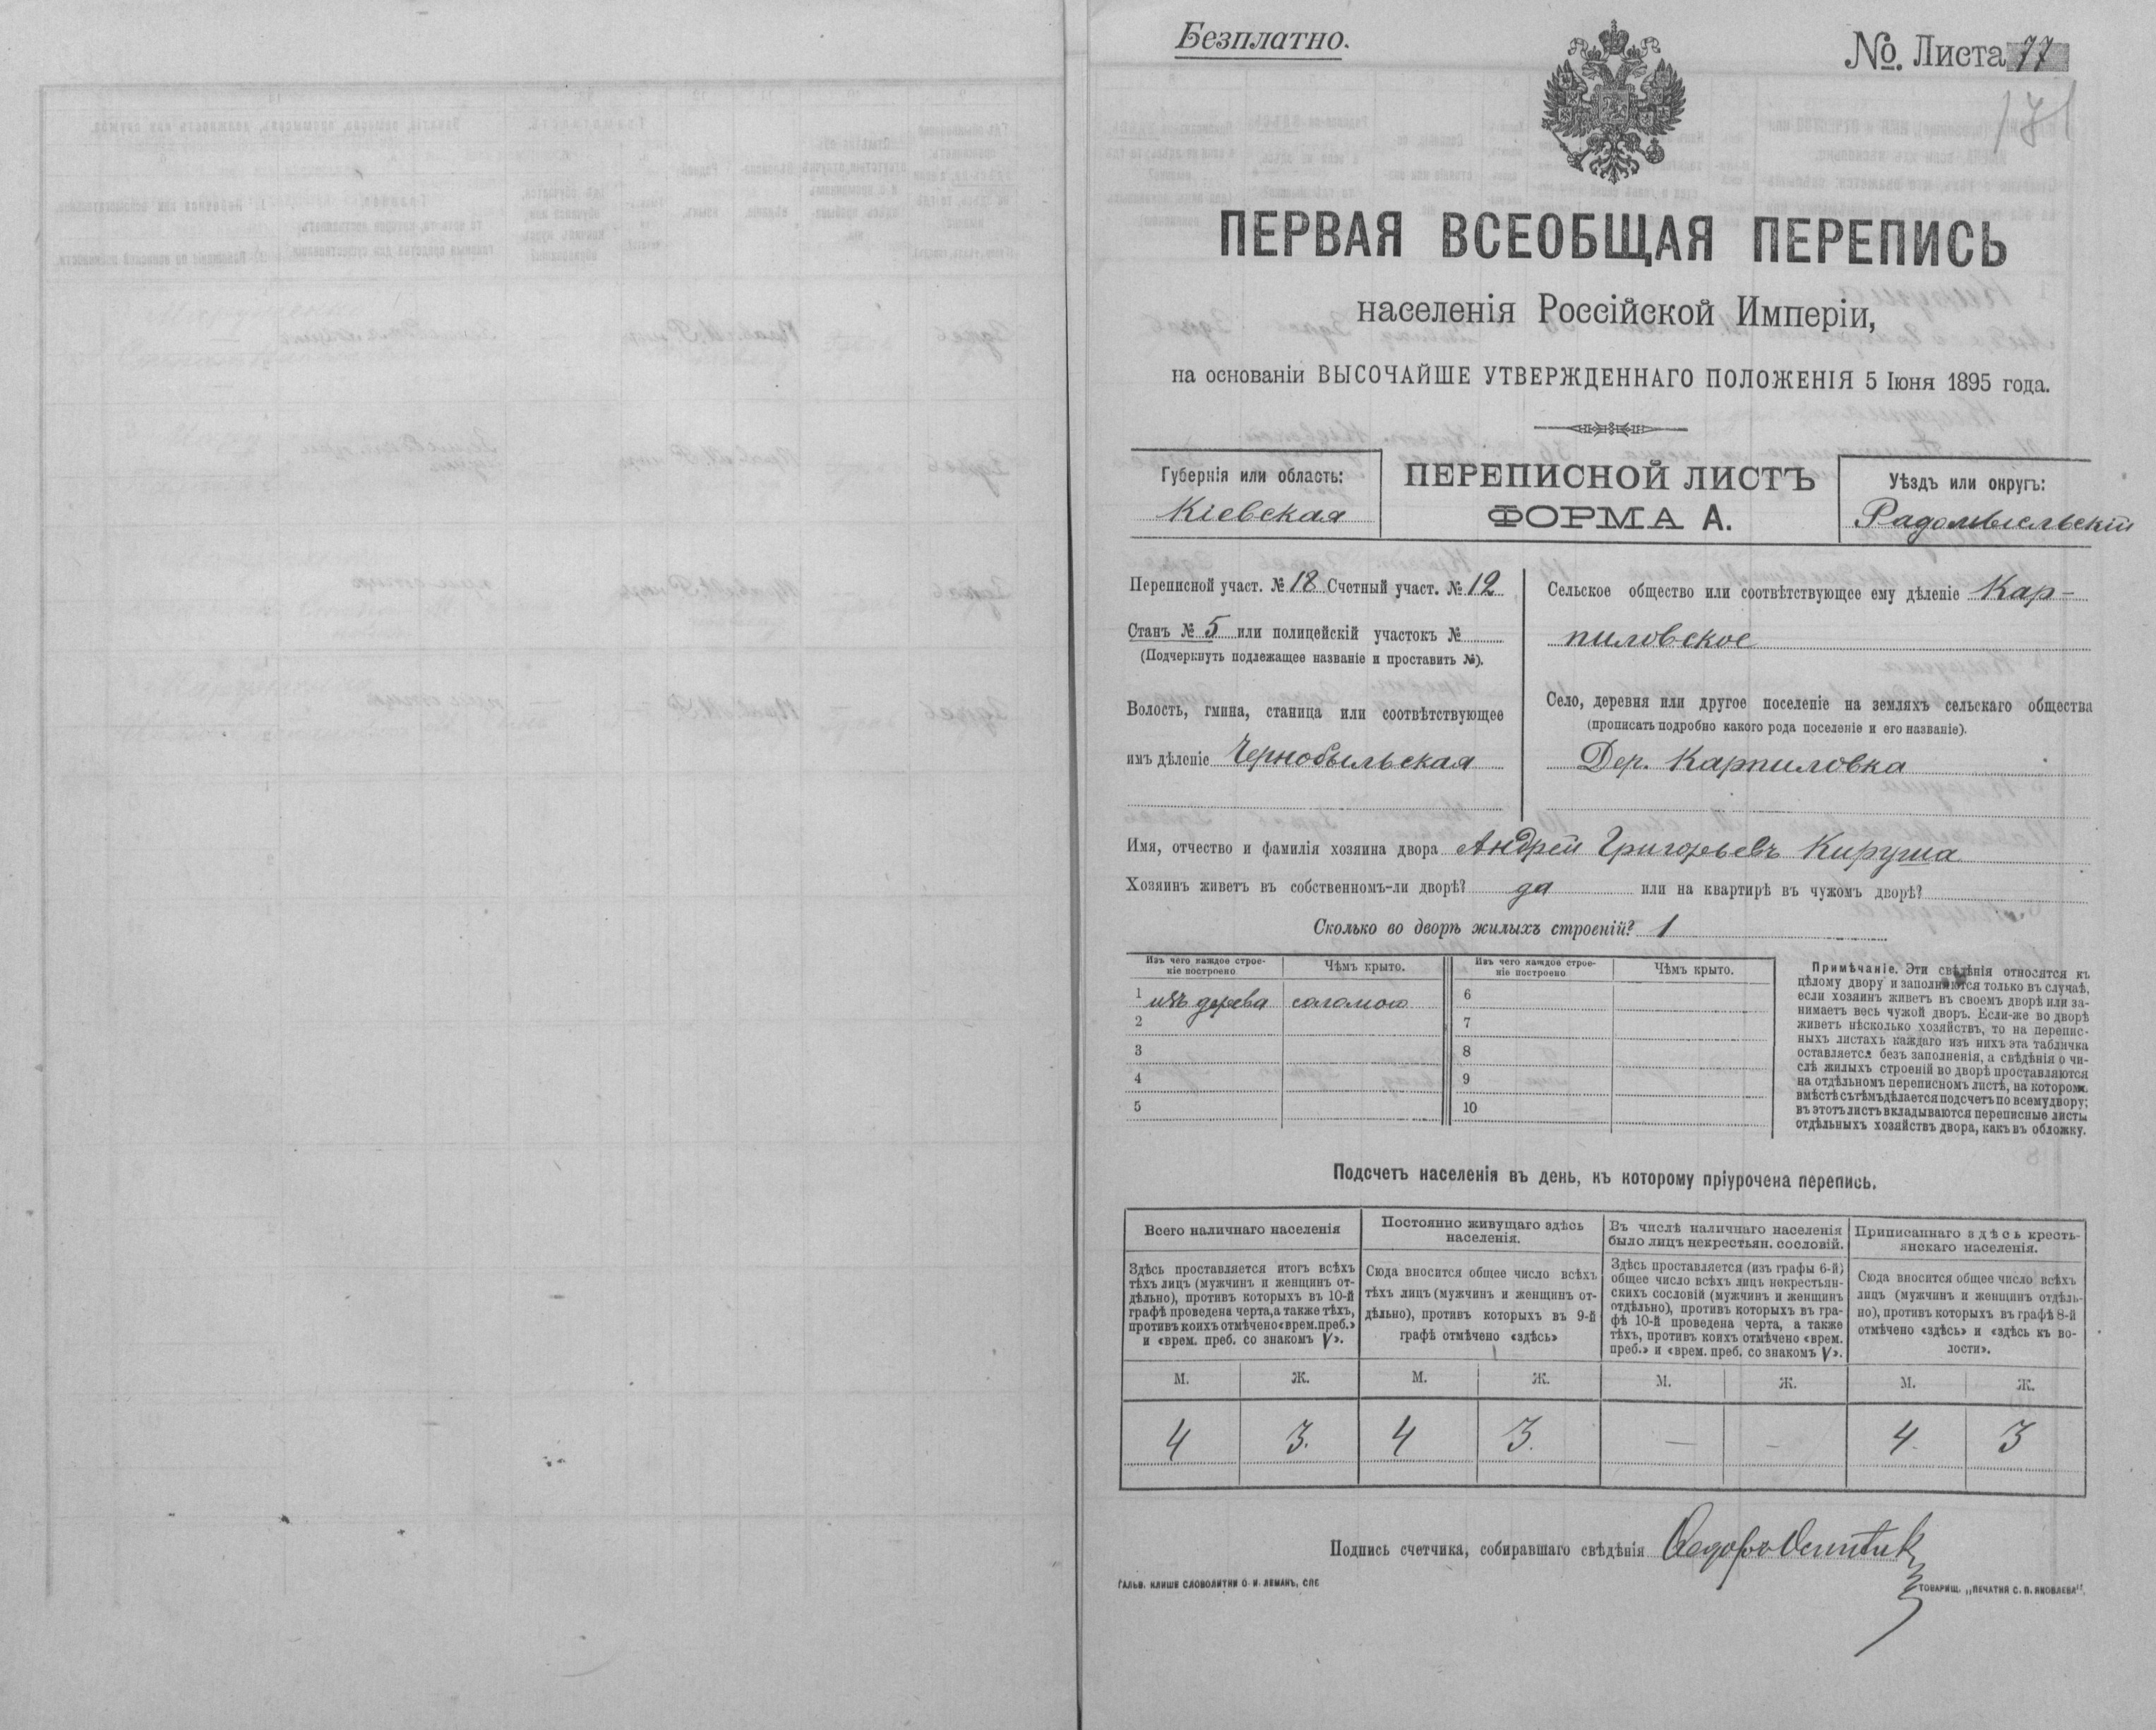 Безплатно.
№. Листа 77
ПЕРВАЯ ВСЕОБЩАЯ ПЕРЕПИСЬ
населенія Россійской Имперіи,
на основаніи ВЫСОЧАЙШЕ УТВЕРЖДЕННАГО ПОЛОЖЕНІЯ 5 Іюня 1895 года.
Губернія или область:
Кіевская
ПЕРЕПИСНОЙ ЛИСТЪ
ФОРМА А.
Уѣздъ или округъ:
Радомысльскій
Переписной участ. № 18 Счетный участ. № 12
Станъ № 5 или полицейскій участокъ №
(Подчеркнуть подлежащее названіе и проставить №).
Волость, гмина, станица или соотвѣтствующее
имъ дѣленіе Чернобыльская
Сельское общество или соотвѣтствующее ему дѣленіе Кар-
пиловское
Село, деревня или другое поселеніе на земляхъ сельскаго общества
(прописать подробно какого рода поселеніе и его названіе).
Дер. Карпиловка
Имя, отчество и фамилія хозяина двора Андрей Григорьевъ
Хозяинъ живетъ въ собственномъ-ли дворѣ? да или на квартирѣ въ чужомъ дворѣ?
Сколько во дворѣ жилыхъ строеній? 1
Изъ чего каждое строе-
ніе построено
Чѣмъ крыто.
Изъ чего каждое строе-
ніе построено
Чѣмъ крыто.
1 изъ дерева соломою
2
3
4
5
6
7
8
9
10
Примѣчаніе. Эти свѣдѣнія относятся къ
цѣлому двору и заполняются только въ случаѣ,
если хозяинъ живетъ въ своемъ дворѣ или за-
нимаетъ весь чужой дворъ. Если-же во дворѣ
живетъ нѣсколько хозяйствъ, то на перепис-
ныхъ листахъ каждаго изъ нихъ эта табличка
оставляется безъ заполненія, а свѣдѣнія о чи-
слѣ жилыхъ строеній во дворѣ проставляются
на отдѣльномъ переписномъ листѣ, на которомъ
вмѣстѣ съ тѣмъ дѣлается подсчетъ по всему двору;
въ этотъ листъ вкладываются переписные листы
отдѣльныхъ хозяйствъ двора, какъ въ обложку.
Подсчетъ населенія въ день, къ которому пріурочена перепись.
Всего наличнаго населенія
Здѣсь проставляется итогъ всѣхъ
тѣхъ лицъ (мужчинъ и женщинъ от-
дѣльно), противъ которыхъ въ 10-й
графѣ проведена черта, а также тѣхъ,
противъ коихъ отмѣчено «врем. преб.»
и «врем. преб. со знакомъ V».
Постоянно живущаго здѣсь
населенія.
Сюда вносится общее число всѣхъ
тѣхъ лицъ (мужчинъ и женщинъ от-
дѣльно), противъ которыхъ въ 9-й
графѣ отмѣчено «здѣсь»
Въ числѣ наличнаго населенія
было лицъ некрестьян. сословій.
Здѣсь проставляется (изъ графы 6-й)
общее число всѣхъ лицъ некрестьян-
скихъ сословій (мужчинъ и женщинъ
отдѣльно), противъ которыхъ въ гра-
фѣ 10-й проведена черта, а также
тѣхъ, противъ коихъ отмѣчено «врем.
преб.» и «врем. преб. со знакомъ V».
Приписаннаго здѣсь кресть-
янскаго населенія.
Сюда вносится общее число всѣхъ
лицъ (мужчинъ и женщинъ отдѣль-
но), противъ которыхъ въ графѣ 8-й
отмѣчено «здѣсь» и «здѣсь къ во-
лости».
М. Ж. М. Ж. М. Ж. М. Ж.
4 3. 4 3. — - 4. 3
Подпись счетчика, собиравшаго свѣдѣнія
ГАЛЬВ. КЛИШЕ СЛОВОЛИТНИ О. И. ЛЕМАНЪ, СПБ
ТОВАРИЩ. „ПЕЧАТНЯ С. П. ЯКОВЛЕВА".